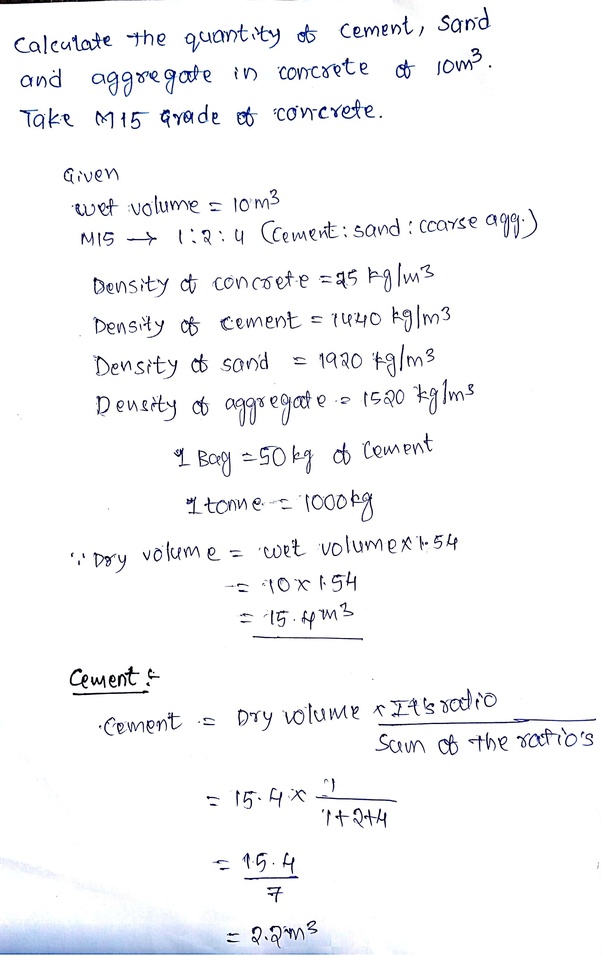 Calculate the quantity of cement, Sand
and aggregate in concrete of 10m³.
Take M15 Grade of concrete.
Given
wet volume = 10m³
M15 → 1:2:4 (Cement: sand: coarse agg.)
Density of concrete = 25 kg/m³
Density of cement = 1440 kg/m³
Density of sand = 1920 kg/m³
Density of aggregate = 1520 kg/m³
1 Bag = 50 kg of Cement
1 tonne = 1000kg
∵ Dry volume = wet volume x 1.54
= 10 x 1.54
= 15.4m³
Cement :-
Cement = Dry volume x It's ratio / Sum of the ratio's
= 15.4 x 1 / 1+2+4
= 15.4 / 7
= 2.2m³